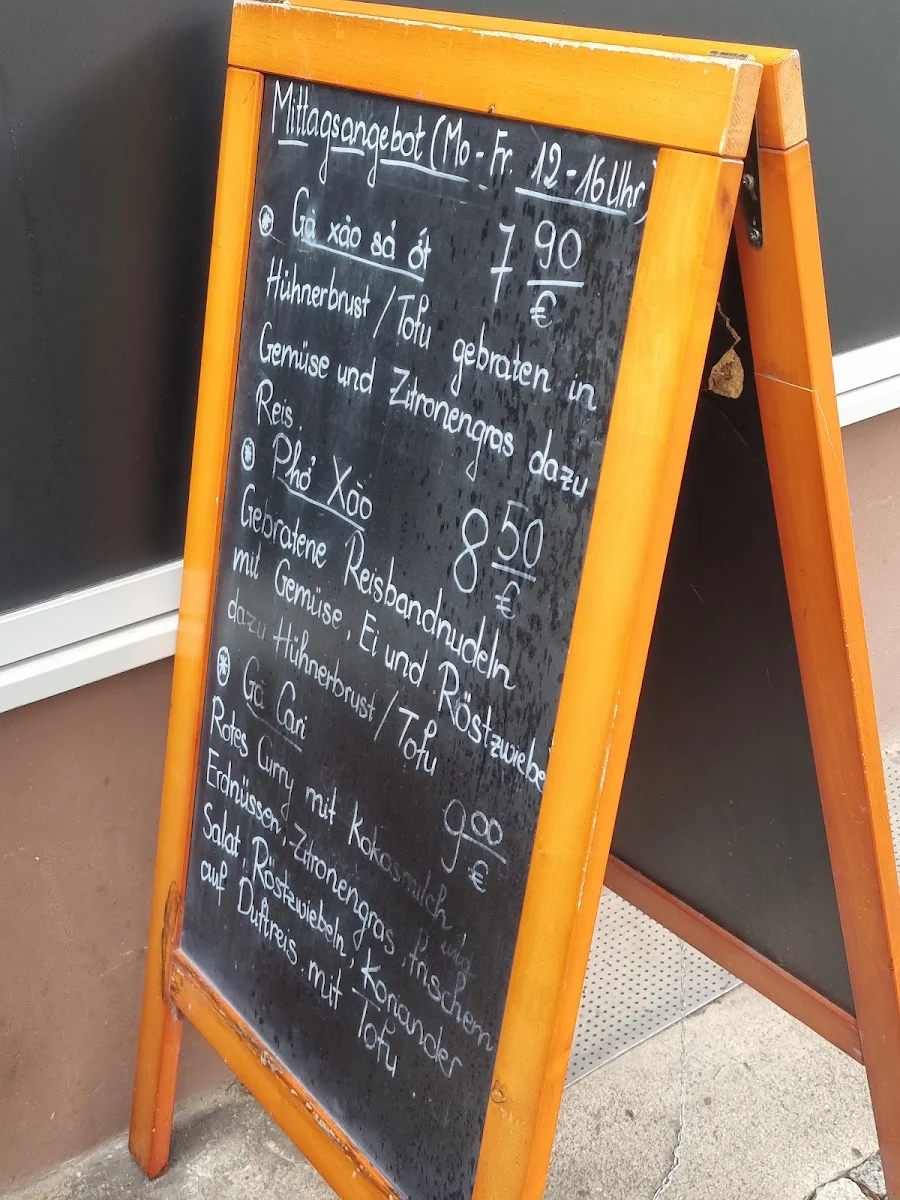 Mittagsangebot (Mo - Fr. 12 - 16 Uhr)
Gà xào sả ớt 7 90 €
Hühnerbrust / Tofu gebraten in
Gemüse und Zitronengras dazu
Reis.
Phở Xào 8 50 €
Gebratene Reisbandnudeln
mit Gemüse, Ei und Röstzwiebel
dazu Hühnerbrust / Tofu
Gà Cari 9 00 €
Rotes Curry mit Kokosmilch und
Erdnüssen, Zitronengras, frischem
Salat, Röstzwiebeln, Koriander
auf Duftreis. mit Tofu